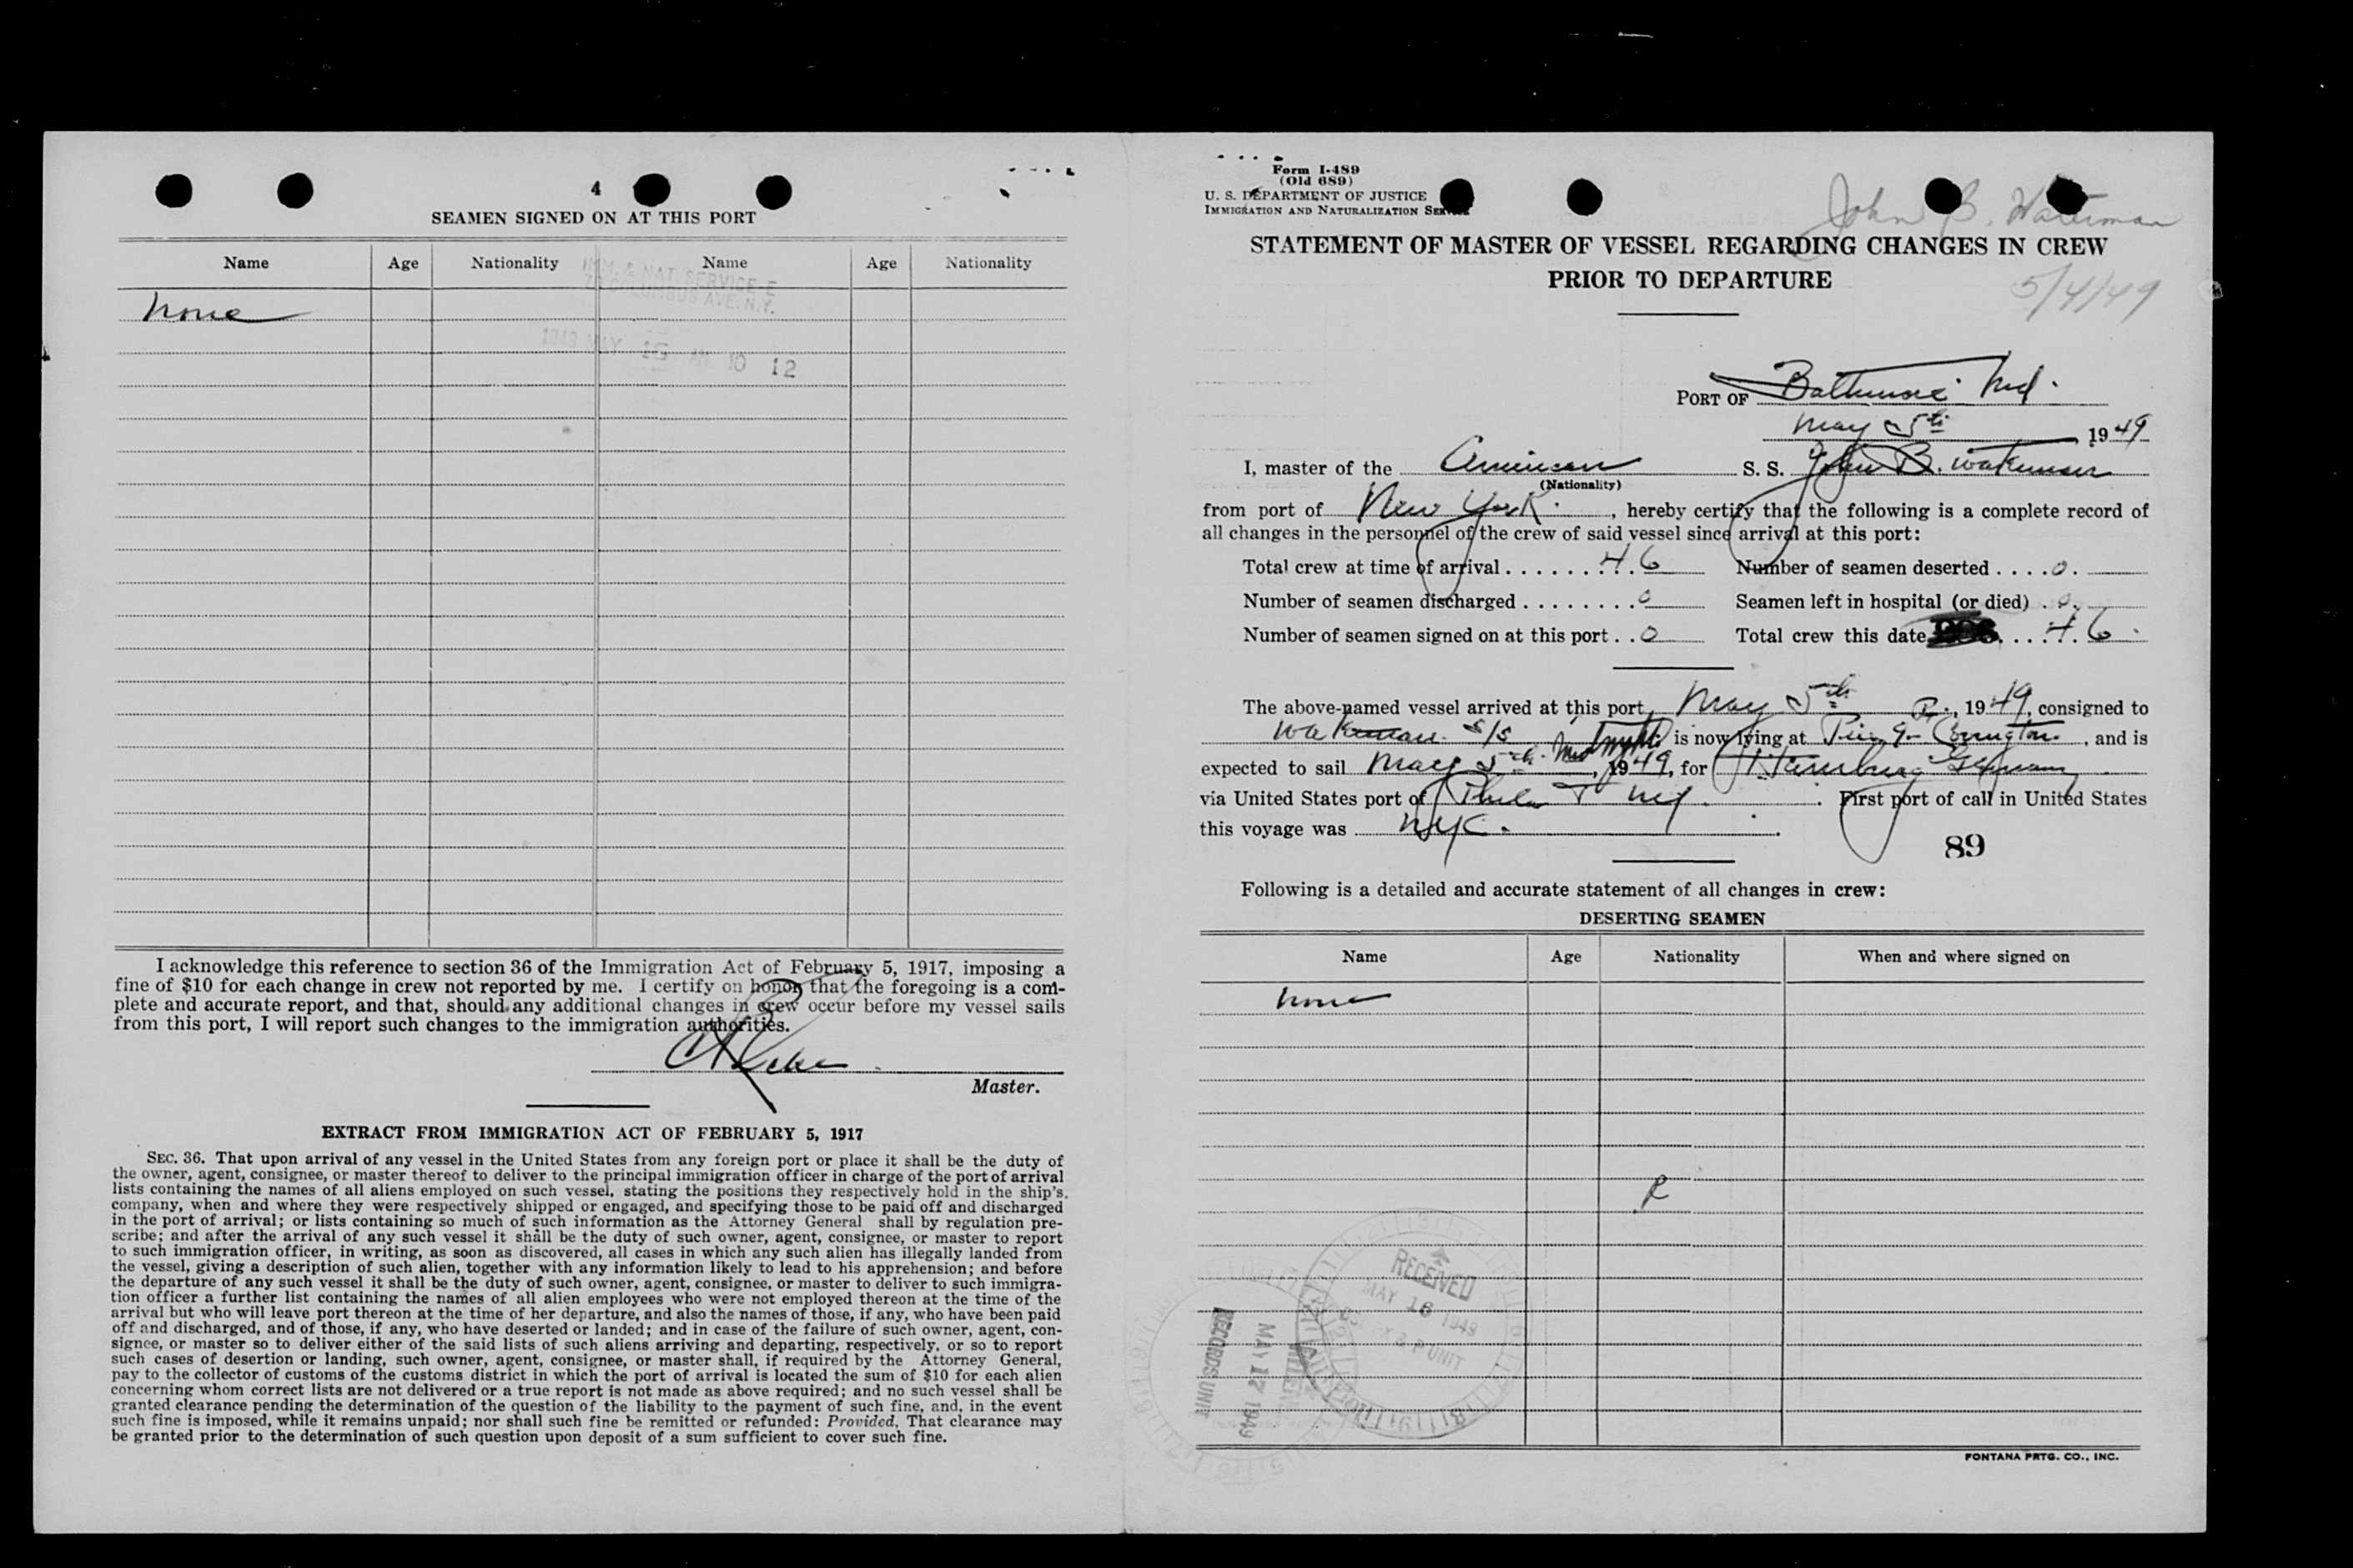 4
SEAMEN SIGNED ON AT THIS PORT
Name Age Nationality Name Age Nationality
IMM. & NAT. SERVICE-E
70 COLUMBUS AVE. N.Y.
1949 MAY 16 AM 10 12
None
I acknowledge this reference to section 36 of the Immigration Act of February 5, 1917, imposing a
fine of $10 for each change in crew not reported by me. I certify on honor that the foregoing is a com-
plete and accurate report, and that, should any additional changes in crew occur before my vessel sails
from this port, I will report such changes to the immigration authorities.
Master.
EXTRACT FROM IMMIGRATION ACT OF FEBRUARY 5, 1917
SEC. 36. That upon arrival of any vessel in the United States from any foreign port or place it shall be the duty of
the owner, agent, consignee, or master thereof to deliver to the principal immigration officer in charge of the port of arrival
lists containing the names of all aliens employed on such vessel, stating the positions they respectively hold in the ship's
company, when and where they were respectively shipped or engaged, and specifying those to be paid off and discharged
in the port of arrival; or lists containing so much of such information as the Attorney General shall by regulation pre-
scribe; and after the arrival of any such vessel it shall be the duty of such owner, agent, consignee, or master to report
to such immigration officer, in writing, as soon as discovered, all cases in which any such alien has illegally landed from
the vessel, giving a description of such alien, together with any information likely to lead to his apprehension; and before
the departure of any such vessel it shall be the duty of such owner, agent, consignee, or master to deliver to such immigra-
tion officer a further list containing the names of all alien employees who were not employed thereon at the time of the
arrival but who will leave port thereon at the time of her departure, and also the names of those, if any, who have been paid
off and discharged, and of those, if any, who have deserted or landed; and in case of the failure of such owner, agent, con-
signee, or master so to deliver either of the said lists of such aliens arriving and departing, respectively, or so to report
such cases of desertion or landing, such owner, agent, consignee, or master shall, if required by the Attorney General,
pay to the collector of customs of the customs district in which the port of arrival is located the sum of $10 for each alien
concerning whom correct lists are not delivered or a true report is not made as above required; and no such vessel shall be
granted clearance pending the determination of the question of the liability to the payment of such fine, and, in the event
such fine is imposed, while it remains unpaid; nor shall such fine be remitted or refunded: Provided, That clearance may
be granted prior to the determination of such question upon deposit of a sum sufficient to cover such fine.
Form I-489
(Old 689)
U. S. DEPARTMENT OF JUSTICE
IMMIGRATION AND NATURALIZATION SERVICE
John B. Waterman
STATEMENT OF MASTER OF VESSEL REGARDING CHANGES IN CREW
PRIOR TO DEPARTURE
5/4/49
PORT OF Baltimore Md.
May 5th, 1949
I, master of the American S. S. John B. Waterman
(Nationality)
from port of New York, hereby certify that the following is a complete record of
all changes in the personnel of the crew of said vessel since arrival at this port:
Total crew at time of arrival 46 Number of seamen deserted 0
Number of seamen discharged 0 Seamen left in hospital (or died) 0
Number of seamen signed on at this port 0 Total crew this date 46
The above-named vessel arrived at this port May 5th, 1949, consigned to
Waterman S/S is now lying at Pier 9, and is
expected to sail May 5th Midnight, 1949, for Hamburg Germany
via United States port of Phila. First port of call in United States
this voyage was NYC.
89
Following is a detailed and accurate statement of all changes in crew:
DESERTING SEAMEN
Name Age Nationality When and where signed on
none
R
RECEIVED
MAY 16 1949
RECORDS UNIT
MAY 17 1949
FONTANA PRTG. CO., INC.